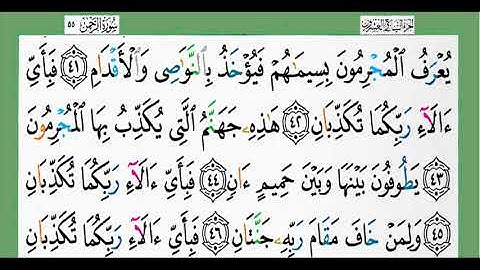 سُورَةُ الرَّحْمَٰن ٥٥
يُعْرَفُ الْمُجْرِمُونَ بِسِيمَاهُمْ فَيُؤْخَذُ بِالنَّوَاصِي وَالْأَقْدَامِ ﴿٤١﴾ فَبِأَيِّ
ءَالَاءِ رَبِّكُمَا تُكَذِّبَانِ ﴿٤٢﴾ هَٰذِهِ جَهَنَّمُ الَّتِي يُكَذِّبُ بِهَا الْمُجْرِمُونَ
﴿٤٣﴾ يَطُوفُونَ بَيْنَهَا وَبَيْنَ حَمِيمٍ ءَانٍ ﴿٤٤﴾ فَبِأَيِّ ءَالَاءِ رَبِّكُمَا تُكَذِّبَانِ
﴿٤٥﴾ وَلِمَنْ خَافَ مَقَامَ رَبِّهِ جَنَّتَانِ ﴿٤٦﴾ فَبِأَيِّ ءَالَاءِ رَبِّكُمَا تُكَذِّبَانِ